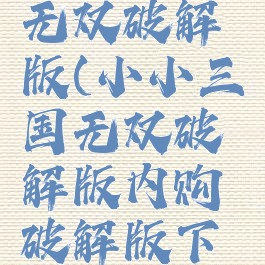 无双破解
版(小小三
国无双破
解版内购
破解版下